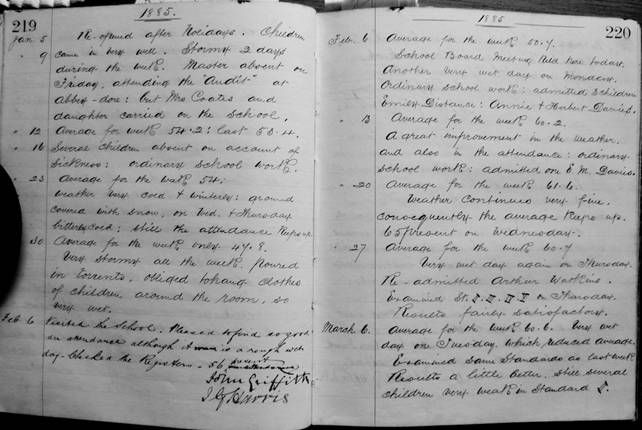 219
1885.
Jan. 5 Re-opened after Holidays. Children
" 9 came in very well. Stormy 2 days
during the week. Master absent on
Friday, attending the "Audit" at
Abbey-dore: but Mrs Coates and
daughter carried on the school.
" 12 Average for week 54.2: last 50.4.
" 16 Several children absent on account of
sickness: ordinary school work.
" 23 Average for the week 54.
Weather very cold & wintery: ground
covered with snow, on Wed. & Thursday
bitterly cold: still the attendance keeps up.
" 30 Average for the week only 47.8.
Very stormy all the week, poured
in torrents, obliged to hang clothes
of children around the room, so
very wet.
Feb. 6 Visited the School. Pleased to find so good
an attendance although it is a rough wet
day. Checked the Registers. 56 present
John Griffiths
J G Harris
220
1885
Feb. 6 Average for the week 50.7.
School Board Meeting held here today.
Another very wet day on Monday.
Ordinary school work: admitted 3 children
Emily Distance: Annie & Herbert Davies.
" 13 Average for the week 60.2.
A great improvement in the weather
and also in the attendance: ordinary
school work: admitted one E. M. Davies.
" 20 Average for the week 61.6.
Weather continues very fine,
consequently the average keeps up.
65 present on Wednesday.
" 27 Average for the week 60.7
Very wet day again on Thursday.
Re-admitted Arthur Watkins.
Examined St. I. II. III on Thursday.
Results fairly satisfactory.
March 6. Average for the week 60.6. Very wet
day on Tuesday, which reduced average.
Examined same Standards as last week
Results a little better, still several
children very weak in Standard I.